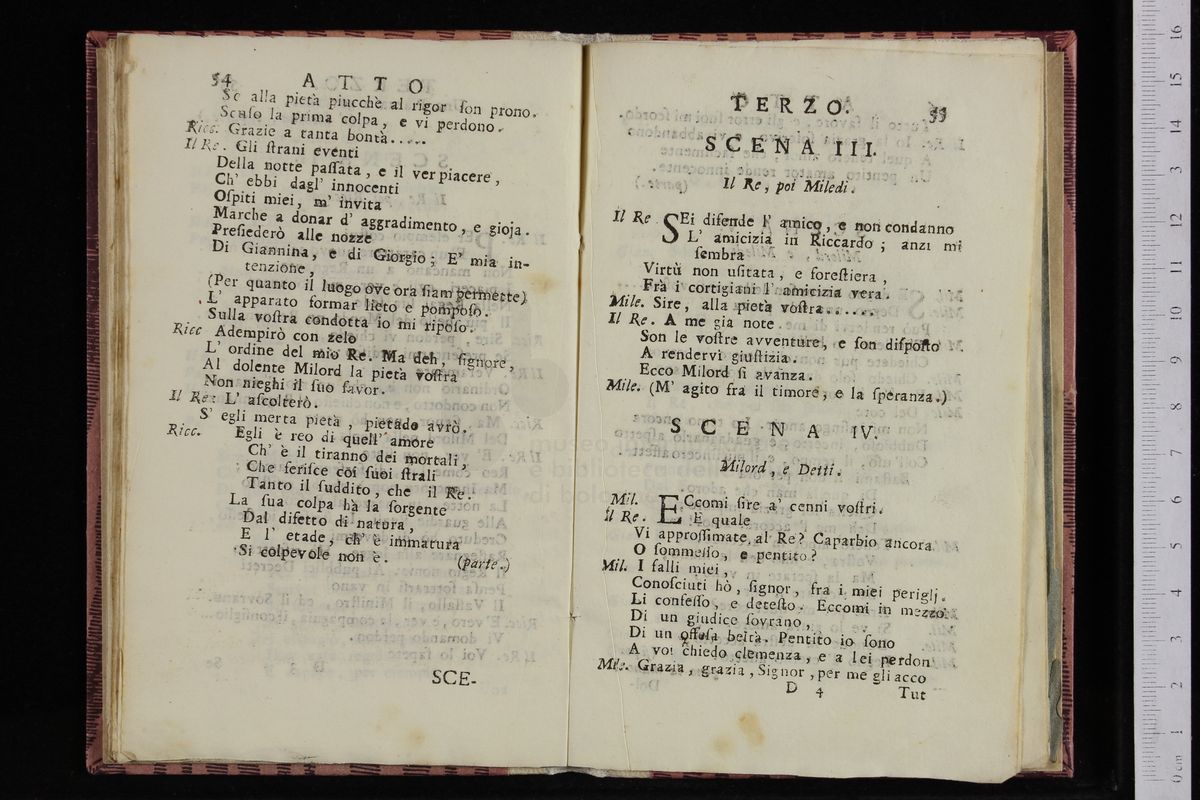 54 ATTO
Se alla pietà piucchè al rigor ſon prono.
Scuſo la prima colpa, e vi perdono.
Ricc. Grazie a tanta bontà.....
Il Re. Gli ſtrani eventi
Della notte paſſata, e il ver piacere,
Ch' ebbi dagl' innocenti
Oſpiti miei, m' invita
Marche a donar d' aggradimento, e gioja.
Preſiederò alle nozze
Di Giannina, e di Giorgio; E' mia in-
tenzione,
(Per quanto il luogo ove ora ſiam permette)
L' apparato formar lieto e pompoſo.
Sulla voſtra condotta io mi ripoſo.
Ricc Adempirò con zelo
L' ordine del mio Re. Ma deh, ſignore,
Al dolente Milord la pietà voſtra
Non nieghi il ſuo favor.
Il Re: L' aſcolterò.
S' egli merta pietà, pietade avrò.
Ricc. Egli è reo di quell' amore
Ch' è il tiranno dei mortali,
Che feriſce coi ſuoi ſtrali
Tanto il ſuddito, che il Re.
La ſua colpa ha la ſorgente
Dal difetto di natura,
E l' etade, ch' è immatura
Si colpevole non è. (parte.)
SCE-
TERZO. 55
SCENA III.
Il Re, poi Miledi.
Il Re SEi difende l' amico, e non condanno
L' amicizia in Riccardo; anzi mi
ſembra
Virtù non uſitata, e foreſtiera,
Frà i cortigiani l' amicizia vera.
Mile. Sire, alla pietà voſtra......
Il Re. A me gia note
Son le voſtre avventure, e ſon diſpoſto
A rendervi giuſtizia.
Ecco Milord ſi avanza.
Mile. (M' agito fra il timore, e la ſperanza.)
SCENA IV.
Milord, e Detti.
Mil. ECcomi ſire a' cenni voſtri.
Il Re. E quale
Vi approſſimate al Re? Caparbio ancora
O ſommeſſo, e pentito?
Mil. I falli miei,
Conoſciuti hò, ſignor, fra i miei periglj.
Li confeſſo, e deteſto. Eccomi in mezzo
Di un giudice ſovrano,
Di un offeſa beltà. Pentito io ſono
A voi chiedo clemenza, e a lei perdon
Mile. Grazia, grazia, Signor, per me gli acco
D 4 Tut